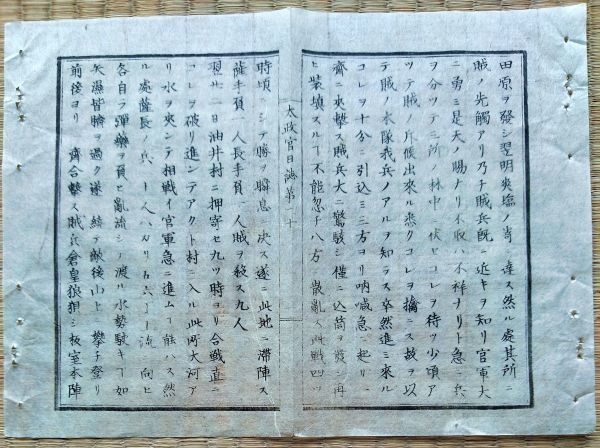 田原ヲ發シ翌明爽塩ノ﨑ニ達ス然ル處其所ニ
賊ノ先觸アリ乃チ賊兵既ニ近キヲ知リ官軍大
ニ勇ミ是天ノ賜ナリ不収ハ不祥ナリト急ニ兵
ヲ分ツテ三所ノ林中ニ伏セコレヲ待ツ少頃ア
ツテ賊ノ斥候出來ル悉クコレヲ擒ニス故ヲ以
テ賊ノ本隊我兵ノアルヲ知ラス卒然進ミ來ル
コレヲ十分ニ引込ミ三方ヨリ吶喊急ニ起リ一
齊ニ夾撃ス賊兵大ニ驚駭シ僅ニ込筒ヲ發シ再
ヒ装填スルヿ不能忽チ八方ニ散亂ス此戰四ツ
太政官日誌第 十
時頃ニシテ勝ヲ瞬息ニ決ス遂ニ此地ニ滞陣ス
薩手負一人長手負一人賊ヲ殺ス九人
翌廿一日油井村ニ押寄セ九ツ時ヨリ合戰直ニ
コレヲ破リ進ンテアクト村ニ入ル此所大河ア
リ水ヲ夾ンテ相戰イ官軍急ニ進ムヿ能ハス然
ル處薩長ノ兵 十人ハカリ 流ニ向ヒ
各自ラ彈藥ヲ負ヒ亂流シテ渡ル水勢駛キヿ如
矢濕皆臍ヲ過ク遂ニ繞テ敵後ノ山ニ攀チ登リ
前後ヨリ一齊合撃ス賊兵倉皇狼狽シ板室本陣